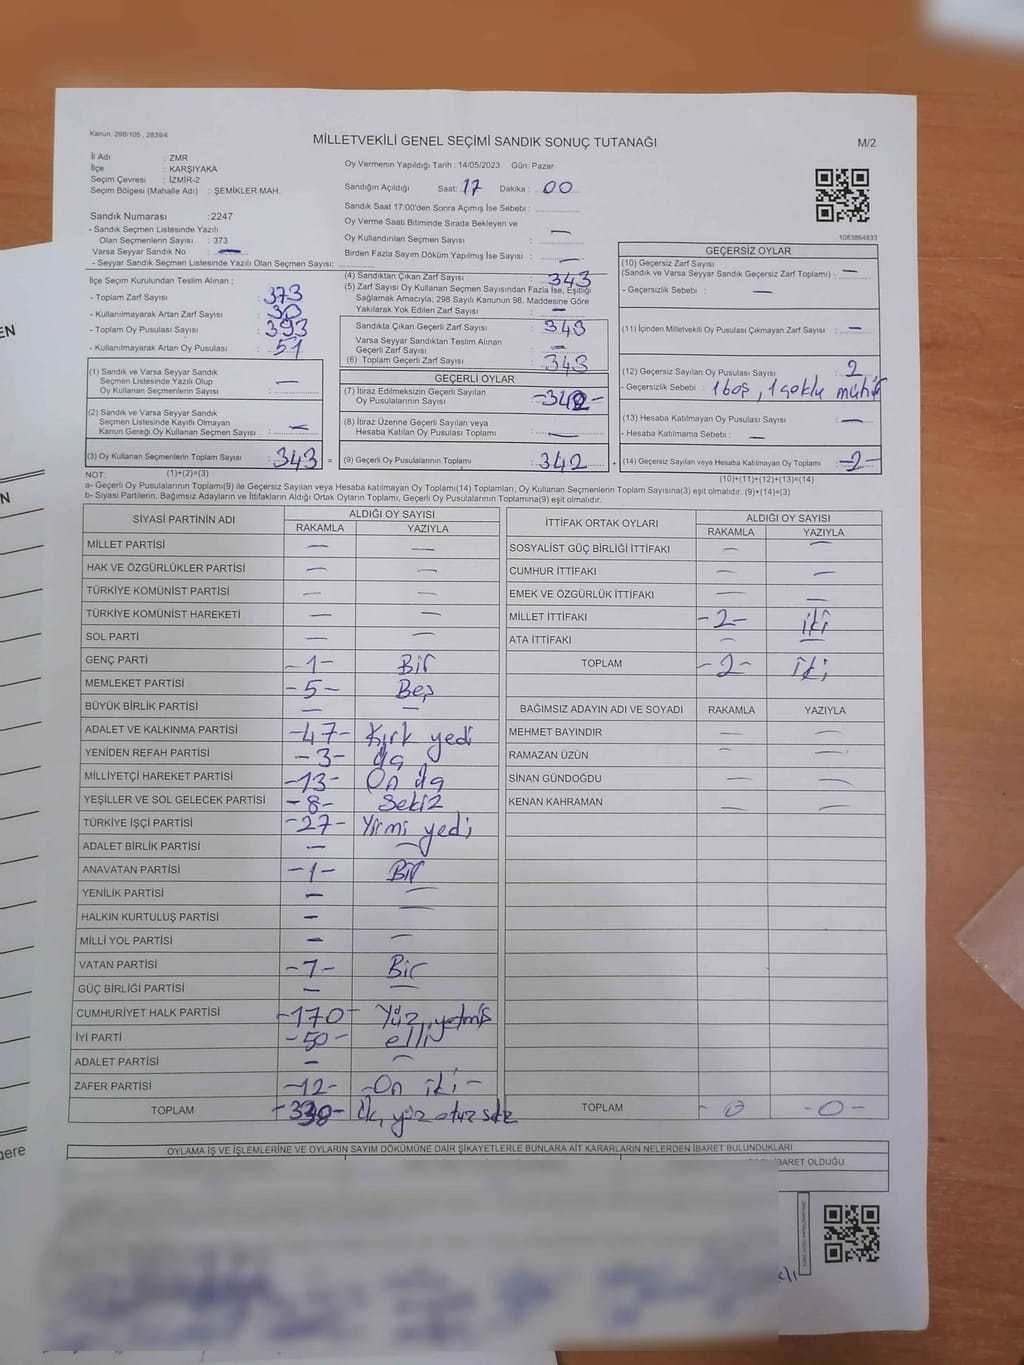 Kanun, 298/105 , 2839/4
MİLLETVEKİLİ GENEL SEÇİMİ SANDIK SONUÇ TUTANAĞI
M/2
İl Adı : ZMR
İlçe : KARŞIYAKA
Seçim Çevresi : İZMİR-2
Seçim Bölgesi (Mahalle Adı) : ŞEMİKLER MAH.
Sandık Numarası :2247
- Sandık Seçmen Listesinde Yazılı
Olan Seçmenlerin Sayısı : 373
Varsa Seyyar Sandık No : —
- Seyyar Sandık Seçmen Listesinde Yazılı Olan Seçmen Sayısı:
İlçe Seçim Kurulundan Teslim Alınan ;
- Toplam Zarf Sayısı : 373
- Kullanılmayarak Artan Zarf Sayısı : 30
- Toplam Oy Pusulası Sayısı : 393
- Kullanılmayarak Artan Oy Pusulası : 51
(1) Sandık ve Varsa Seyyar Sandık
Seçmen Listesinde Yazılı Olup
Oy Kullanan Seçmenlerin Sayısı : —
(2) Sandık ve Varsa Seyyar Sandık
Seçmen Listesinde Kayıtlı Olmayan
Kanun Gereği Oy Kullanan Seçmen Sayısı : —
(3) Oy Kullanan Seçmenlerin Toplam Sayısı : 343 =
Oy Vermenin Yapıldığı Tarih : 14/05/2023 Gün: Pazar
Sandığın Açıldığı Saat: 17 Dakika : 00
Sandık Saat 17:00'den Sonra Açımış İse Sebebi :
Oy Verme Saati Bitiminde Sırada Bekleyen ve
Oy Kullandırılan Seçmen Sayısı : —
Birden Fazla Sayım Döküm Yapılmış İse Sayısı : —
(4) Sandıktan Çıkan Zarf Sayısı : 343
(5) Zarf Sayısı Oy Kullanan Seçmen Sayısından Fazla İse, Eşitliği
Sağlamak Amacıyla; 298 Sayılı Kanunun 98. Maddesine Göre
Yakılarak Yok Edilen Zarf Sayısı : —
Sandıkta Çıkan Geçerli Zarf Sayısı : 343
Varsa Seyyar Sandıktan Teslim Alınan
Geçerli Zarf Sayısı : —
(6) Toplam Geçerli Zarf Sayısı : 343
GEÇERLİ OYLAR
(7) İtiraz Edilmeksizin Geçerli Sayılan
Oy Pusulalarının Sayısı : -342-
(8) İtiraz Üzerine Geçerli Sayılan veya
Hesaba Katılan Oy Pusulası Toplamı : —
(9) Geçerli Oy Pusulalarının Toplamı : 342 +
1083864833
GEÇERSİZ OYLAR
(10) Geçersiz Zarf Sayısı
(Sandık ve Varsa Seyyar Sandık Geçersiz Zarf Toplamı) : —
- Geçersizlik Sebebi : —
(11) İçinden Milletvekili Oy Pusulası Çıkmayan Zarf Sayısı : —
(12) Geçersiz Sayılan Oy Pusulası Sayısı : 2
- Geçersizlik Sebebi : 1 boş, 1 çoklu mühür
(13) Hesaba Katılmayan Oy Pusulası Sayısı : —
- Hesaba Katılmama Sebebi : —
(14) Geçersiz Sayılan veya Hesaba Katılmayan Oy Toplamı : -2-
NOT: (1)+(2)=(3)
(10)+(11)+(12)+(13)=(14)
a- Geçerli Oy Pusulalarının Toplamı(9) ile Geçersiz Sayılan veya Hesaba katılmayan Oy Toplamı(14) Toplamları, Oy Kullanan Seçmenlerin Toplam Sayısına(3) eşit olmalıdır. (9)+(14)=(3)
b- Siyasi Partilerin, Bağımsız Adayların ve İttifakların Aldığı Ortak Oyların Toplamı, Geçerli Oy Pusulalarının Toplamına(9) eşit olmalıdır.
SİYASİ PARTİNİN ADI ALDIĞI OY SAYISI
RAKAMLA YAZIYLA
MİLLET PARTİSİ — —
HAK VE ÖZGÜRLÜKLER PARTİSİ — —
TÜRKİYE KOMÜNİST PARTİSİ — —
TÜRKİYE KOMÜNİST HAREKETİ — —
SOL PARTİ — —
GENÇ PARTİ -1- Bir
MEMLEKET PARTİSİ -5- Beş
BÜYÜK BİRLİK PARTİSİ — —
ADALET VE KALKINMA PARTİSİ -47- Kırk yedi
YENİDEN REFAH PARTİSİ -3- üç
MİLLİYETÇİ HAREKET PARTİSİ -13- On üç
YEŞİLLER VE SOL GELECEK PARTİSİ -8- Sekiz
TÜRKİYE İŞÇİ PARTİSİ -27- Yirmi yedi
ADALET BİRLİK PARTİSİ — —
ANAVATAN PARTİSİ -1- Bir
YENİLİK PARTİSİ — —
HALKIN KURTULUŞ PARTİSİ — —
MİLLİ YOL PARTİSİ — —
VATAN PARTİSİ -1- Bir
GÜÇ BİRLİĞİ PARTİSİ — —
CUMHURİYET HALK PARTİSİ -170- Yüz yetmiş
İYİ PARTİ -50- elli
ADALET PARTİSİ — —
ZAFER PARTİSİ -12- -On iki-
TOPLAM
İTTİFAK ORTAK OYLARI ALDIĞI OY SAYISI
RAKAMLA YAZIYLA
SOSYALİST GÜÇ BİRLİĞİ İTTİFAKI — —
CUMHUR İTTİFAKI — —
EMEK VE ÖZGÜRLÜK İTTİFAKI — —
MİLLET İTTİFAKI -2- iki
ATA İTTİFAKI — —
TOPLAM -2- iki
BAĞIMSIZ ADAYIN ADI VE SOYADI RAKAMLA YAZIYLA
MEHMET BAYINDIR — —
RAMAZAN ÜZÜN — —
SİNAN GÜNDOĞDU — —
KENAN KAHRAMAN — —
TOPLAM - 0 -0-
OYLAMA İŞ VE İŞLEMLERİNE VE OYLARIN SAYIM DÖKÜMÜNE DAİR ŞİKAYETLERLE BUNLARA AİT KARARLARIN NELERDEN İBARET BULUNDUKLARI
İBARET OLDUĞU